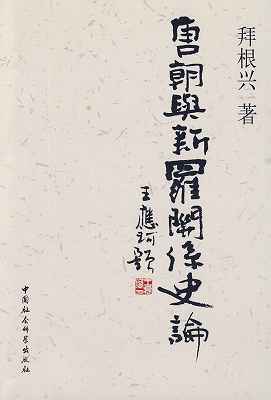 拜根兴 著
唐朝與新羅關係史論
王應珂題
中国社会科学出版社